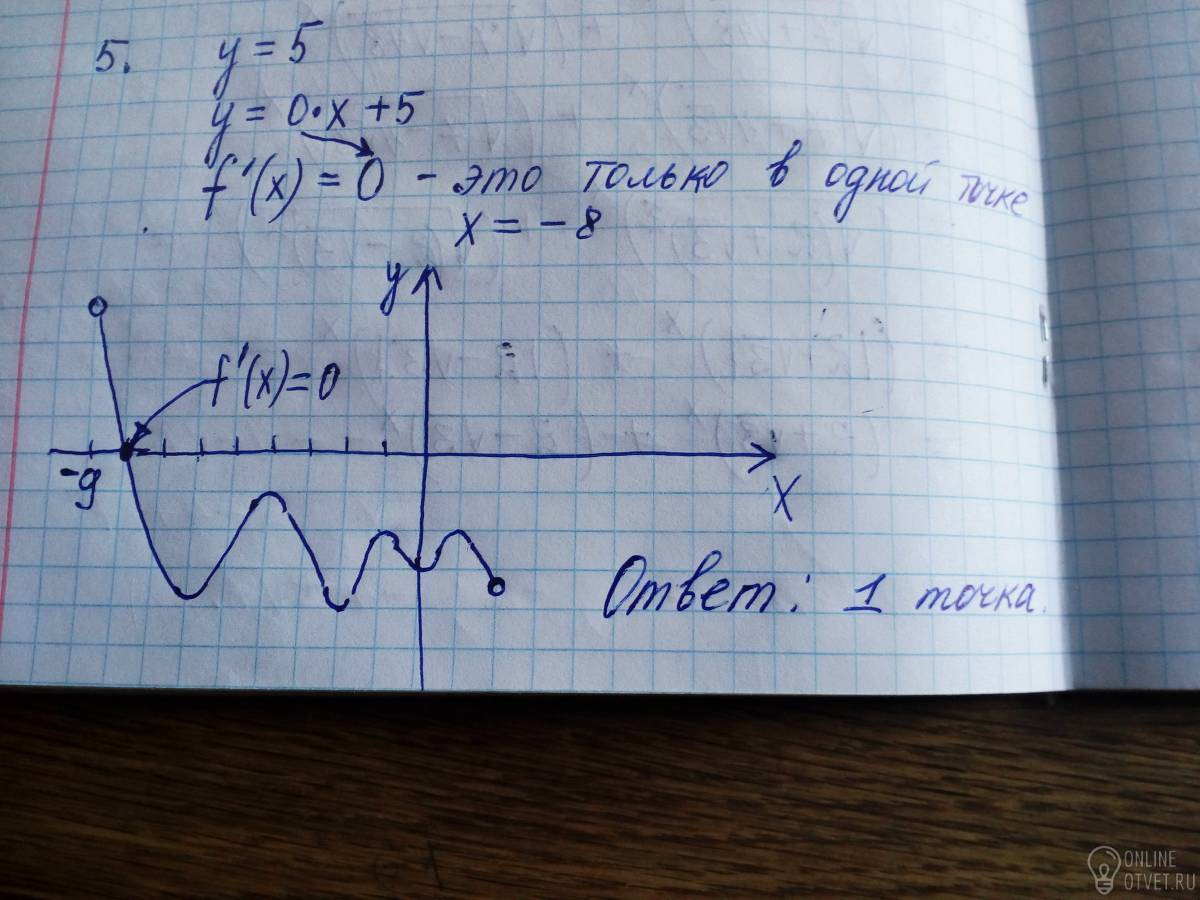 5. y = 5
y = 0·x + 5
f'(x) = 0 - это только в одной точке
x = -8
y
f'(x)=0
-9
X
Ответ: 1 точка.
ONLINE
OTVET.RU